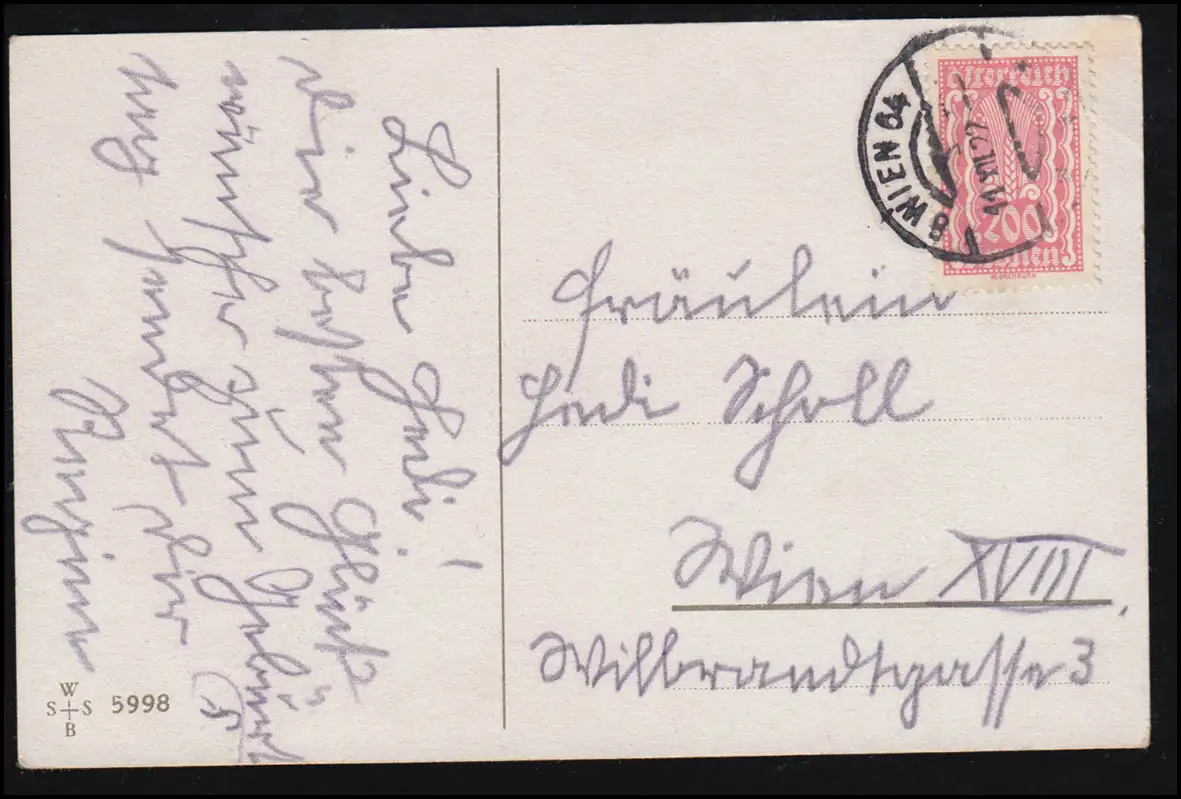 Liebe Hedi!
Die besten Glück
wünsche zum Geburts
tag sendet dir
W
S S
B
5998
8 WIEN 64
11.XII.22
Österreich
200
Kronen
Fräulein
Hedi Scholl
Wien XVIII,
Wilbrandtgasse 3